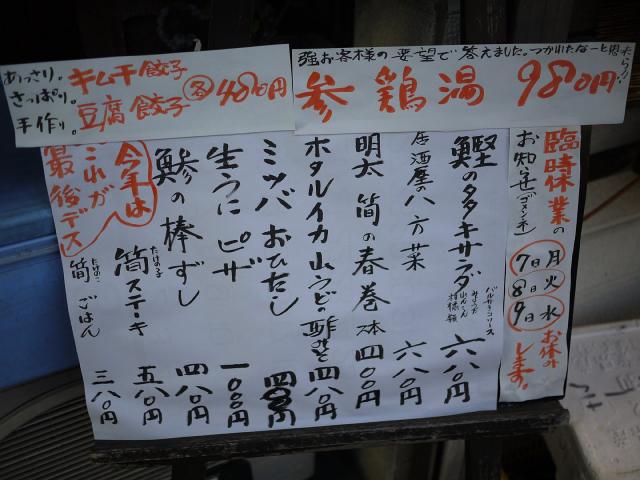 あっさり。
さっぱり。
手作り。
キムチ餃子
豆腐餃子 各480円
強いお客様の要望で答えました。つかれたなーと思ったら!!
参鶏湯 980円
臨時休業の
お知らせ(ゴメンネ)
7日月
8日火
9日水
お休み
します。
鰹のタタキサラダ 六八〇円
バルサミコソース
居酒屋の八方菜 六八〇円
明太筒の春巻 二本 四〇〇円
ホタルイカ山うどの酢みそ 四八〇円
ミツバおひたし 四〇〇円
生うにピザ 一〇〇〇円
鯵の棒ずし 四八〇円
今年は
これが
最後デス
筒ステーキ 五八〇円
たけの子
筒ごはん 三八〇円
たけのこ